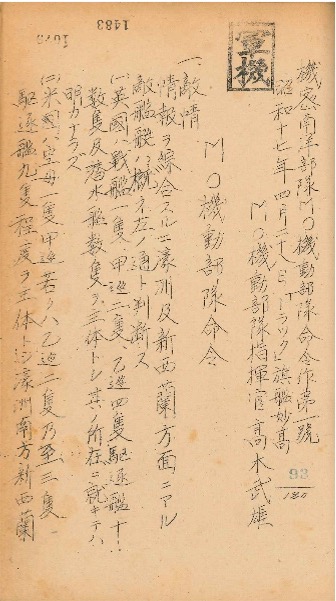 1483
1679
軍機
機密南洋部隊MO機動部隊命令作第一號
昭和十七年四月二十八日「トラック」旗艦妙高
MO機動部隊指揮官高木武雄
MO機動部隊命令
一、敵情
情報ヲ綜合スルニ濠洲及新西蘭方面ニアル
敵艦艇ハ概ネ左ノ通ト判断ス
(一)英國ハ戰艦一隻甲巡二隻乙巡四隻駆逐艦十
数隻及潜水艦数隻ヲ主体トシ其ノ所在ニ就キテハ
明カナラズ
(二)米國ハ空母一隻甲巡若クハ乙巡二隻乃至三隻
駆逐艦九隻程度ヲ主体トシ濠洲南方新西蘭
93
180